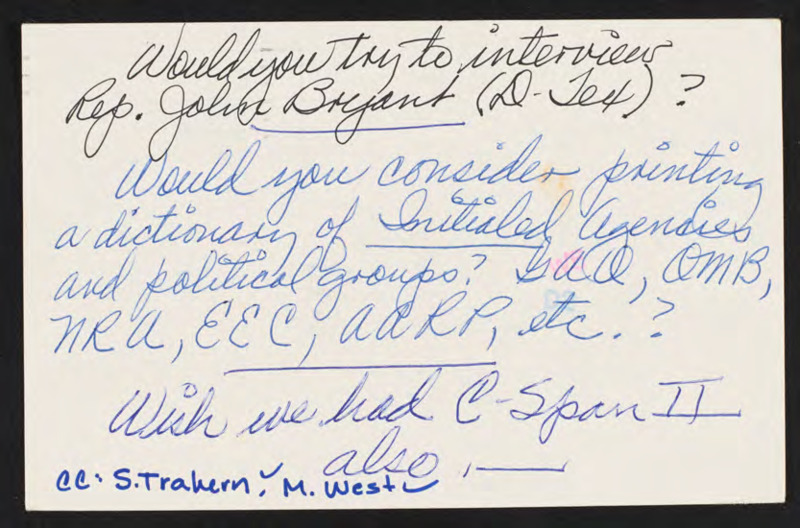 Would you try to interview
Rep. John Bryant (D-Tex) ?
Would you consider printing
a dictionary of Initialed Agencies
and political groups? GAO, OMB,
NRA, EEC, AARP, etc. ?
Wish we had C-Span II
also.
cc: S. Trahern, M. West